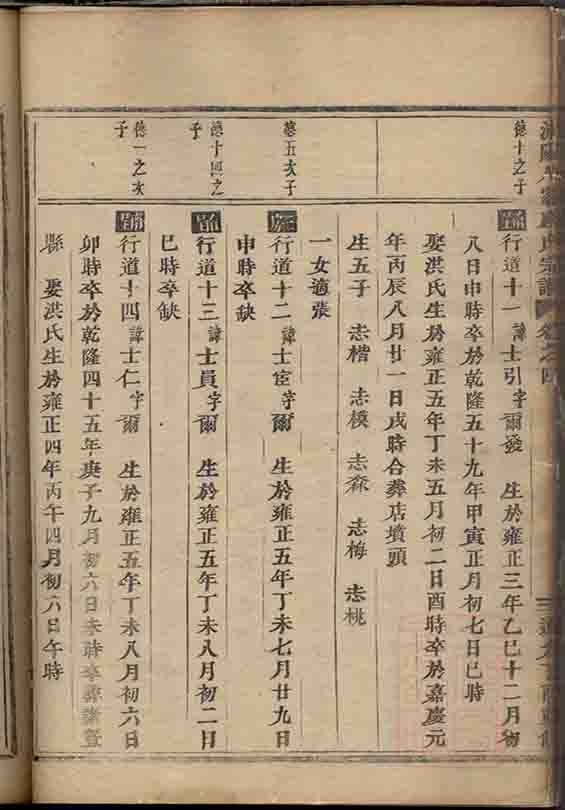 德十之子
行道十一諱士引字爾發 生於雍正三年乙巳十二月初
八日申時卒於乾隆五十九年甲寅正月初七日巳時
娶洪氏生於雍正五年丁未五月初二日酉時卒於嘉慶元
年丙辰八月廿一日戌時合葬店墳頭
生五子 志楷 志模 志森 志梅 志桃
一女適張
德五次子
行道十二諱士宦字爾 生於雍正五年丁未七月廿九日
申時卒缺
德十四之
子
行道十三諱士員字爾 生於雍正五年丁未八月初二日
巳時卒缺
德一之次
子
行道十四諱士仁字爾 生於雍正五年丁未八月初六日
卯時卒於乾隆四十五年庚子九月初六日未時卒葬
縣 娶洪氏生於雍正四年丙午四月初六日午時